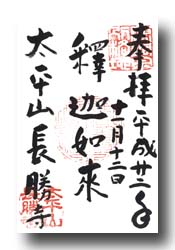 奉拝 平成廿二年
十一月十二日
釋迦如來
太平山長勝寺